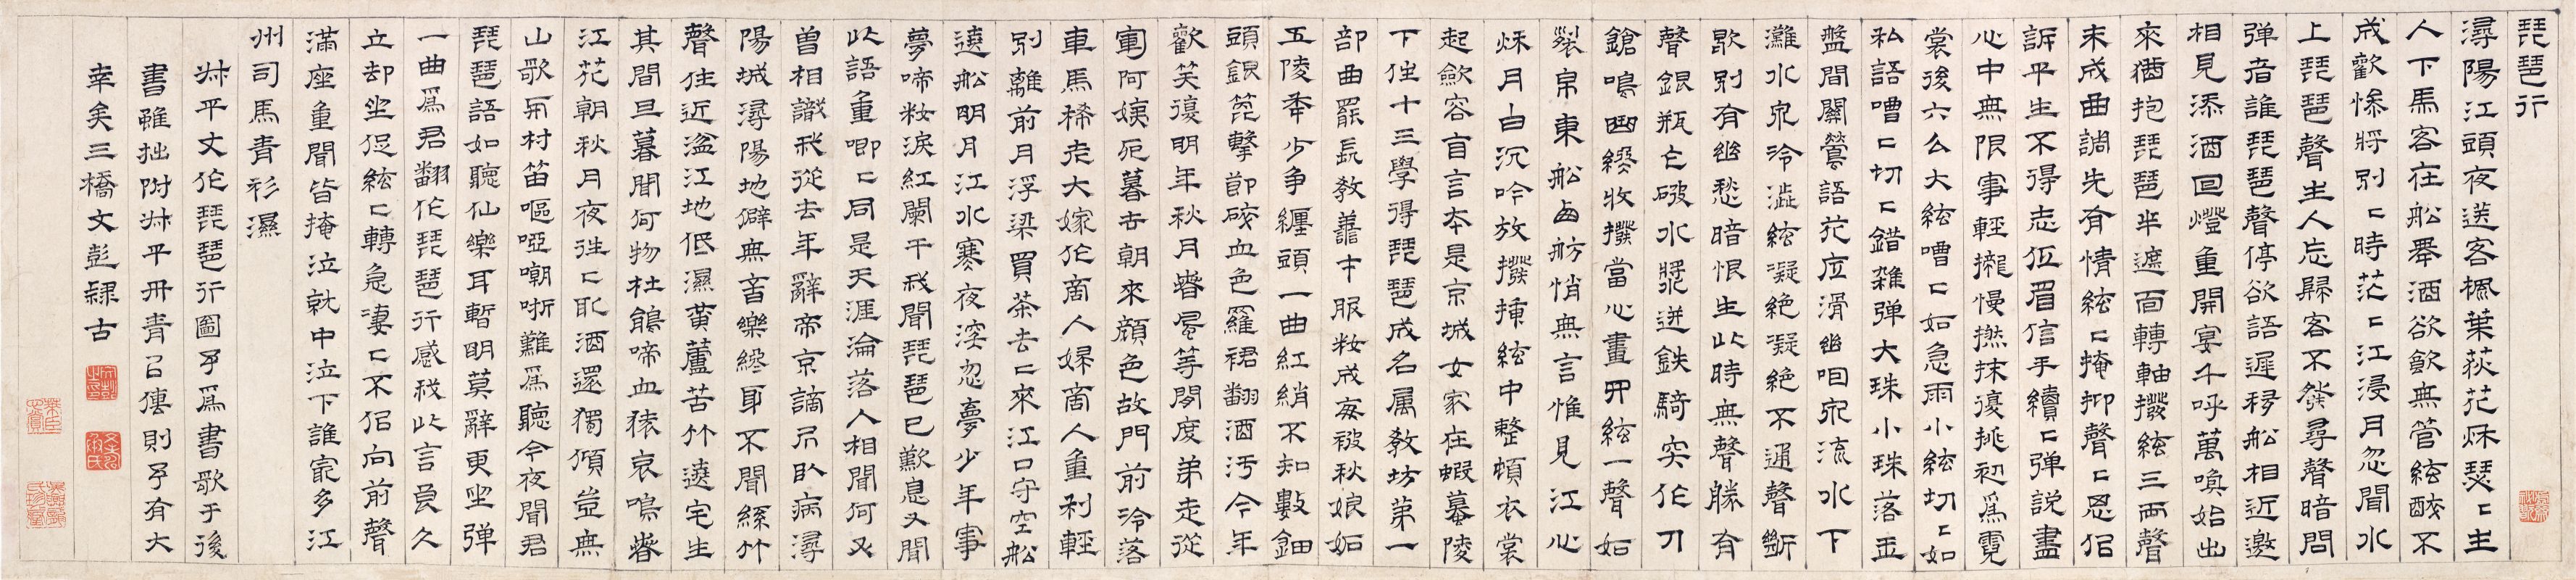 琵琶行
潯陽江頭夜送客楓葉荻花秌瑟〻主
人下馬客在船舉酒欲飲無管絃醉不
成歡慘將別〻時茫〻江浸月忽聞水
上琵琶聲主人忘歸客不發尋聲暗問
弹者誰琵琶聲停欲語遲移船相近邀
相見添酒回燈重開宴千呼萬喚始出
來猶抱琵琶半遮面轉軸撥絃三兩聲
未成曲調先有情絃〻掩抑聲〻思佀
訴平生不得志低眉信手續〻弹說盡
心中無限事輕攏慢撚抹復挑初爲霓
裳後六么大絃嘈〻如急雨小絃切〻如
私語嘈〻切〻錯雜弹大珠小珠落玉
盤間關鶯語花底滑幽咽泉流水下
灘水泉冷澁絃凝絶凝絶不通聲暫
歇別有幽愁暗恨生此時無聲勝有
聲銀瓶乍破水漿迸鉄騎突作刀
鎗鳴曲終收撥當心畫四絃一聲如
裂帛東船西舫悄無言惟見江心
秌月白沉吟放撥插絃中整頓衣裳
起斂容自言本是京城女家在蝦蟇陵
下住十三學得琵琶成名属教坊第一
部曲罷長教善才服粧成每被秋娘妬
五陵年少争纏頭一曲紅綃不知數鈿
頭銀篦擊節碎血色羅裙翻酒汚今年
歡笑復明年秋月春風等閑度弟走從
軍阿姨死暮去朝來顏色故門前冷落
車馬稀老大嫁作商人婦商人重利輕
別離前月浮梁買茶去〻來江口守空船
遶船明月江水寒夜深忽夢少年事
夢啼粧淚紅闌干我聞琵琶已歎息又聞
此語重唧〻同是天涯淪落人相聞何必
曾相識我從去年辭帝京謫居卧病潯
陽城潯陽地僻無音樂終歲不聞絲竹
聲住近湓江地低濕黃蘆苦竹遶宅生
其間旦暮聞何物杜鵑啼血猿哀鳴春
江花朝秋月夜往〻取酒還獨傾豈無
山歌與村笛嘔啞嘲哳難爲聽今夜聞君
琵琶語如聽仙樂耳暫明莫辭更坐弹
一曲爲君翻作琵琶行感我此言良久
立却坐促絃〻轉急凄〻不佀向前聲
滿座重聞皆掩泣就中泣下誰最多江
州司馬青衫濕
叔平丈作琵琶行圖予爲書歌于後
書雖拙附叔平丹青以傳則予有大
幸矣三橋文彭隷古